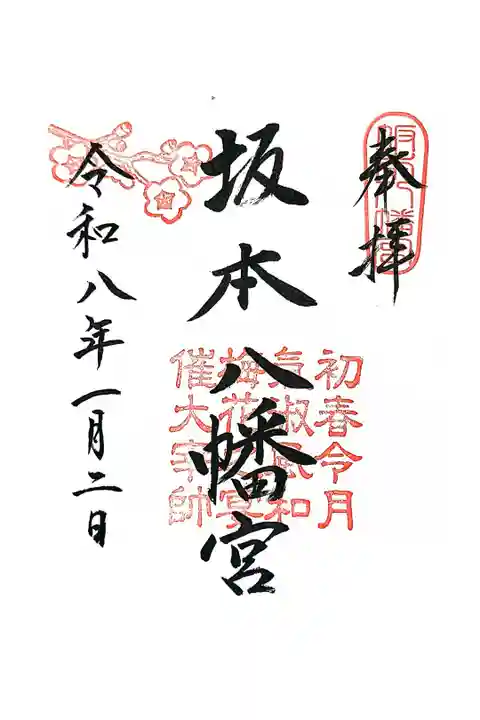 奉拝
坂本八幡宮
初春令月
気淑風和
梅花宴
催大宰帥
令和八年一月二日